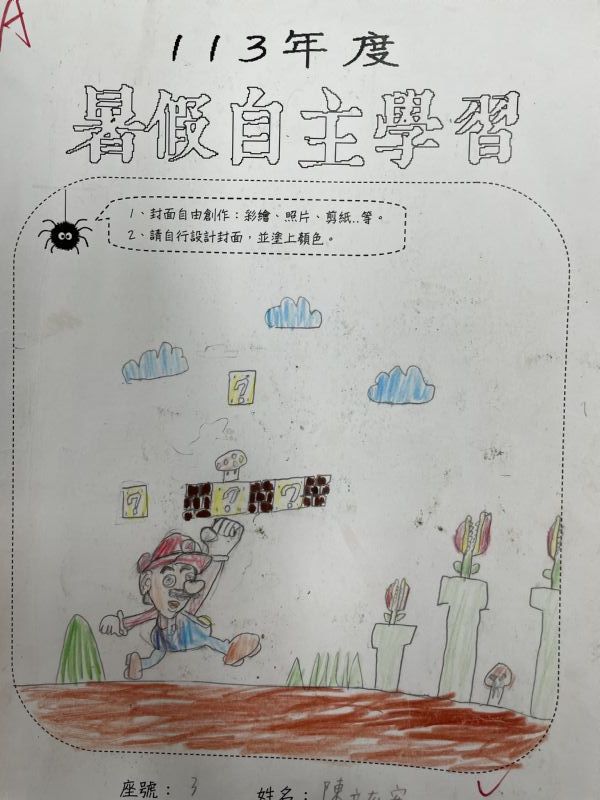 A
113年度
暑假自主學習
1、封面自由創作：彩繪、照片、剪紙..等。
2、請自行設計封面，並塗上顏色。
?
? ?
?
座號： 3
姓名： 陳